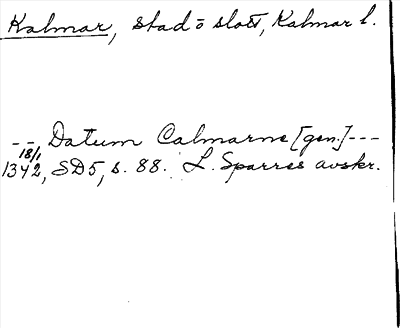 Kalmar, stad o slott, Kalmar l.
- - Datum Calmarne [gen.] - - -
18/1
1342, SD5, s. 88. L. Sparres avskr.